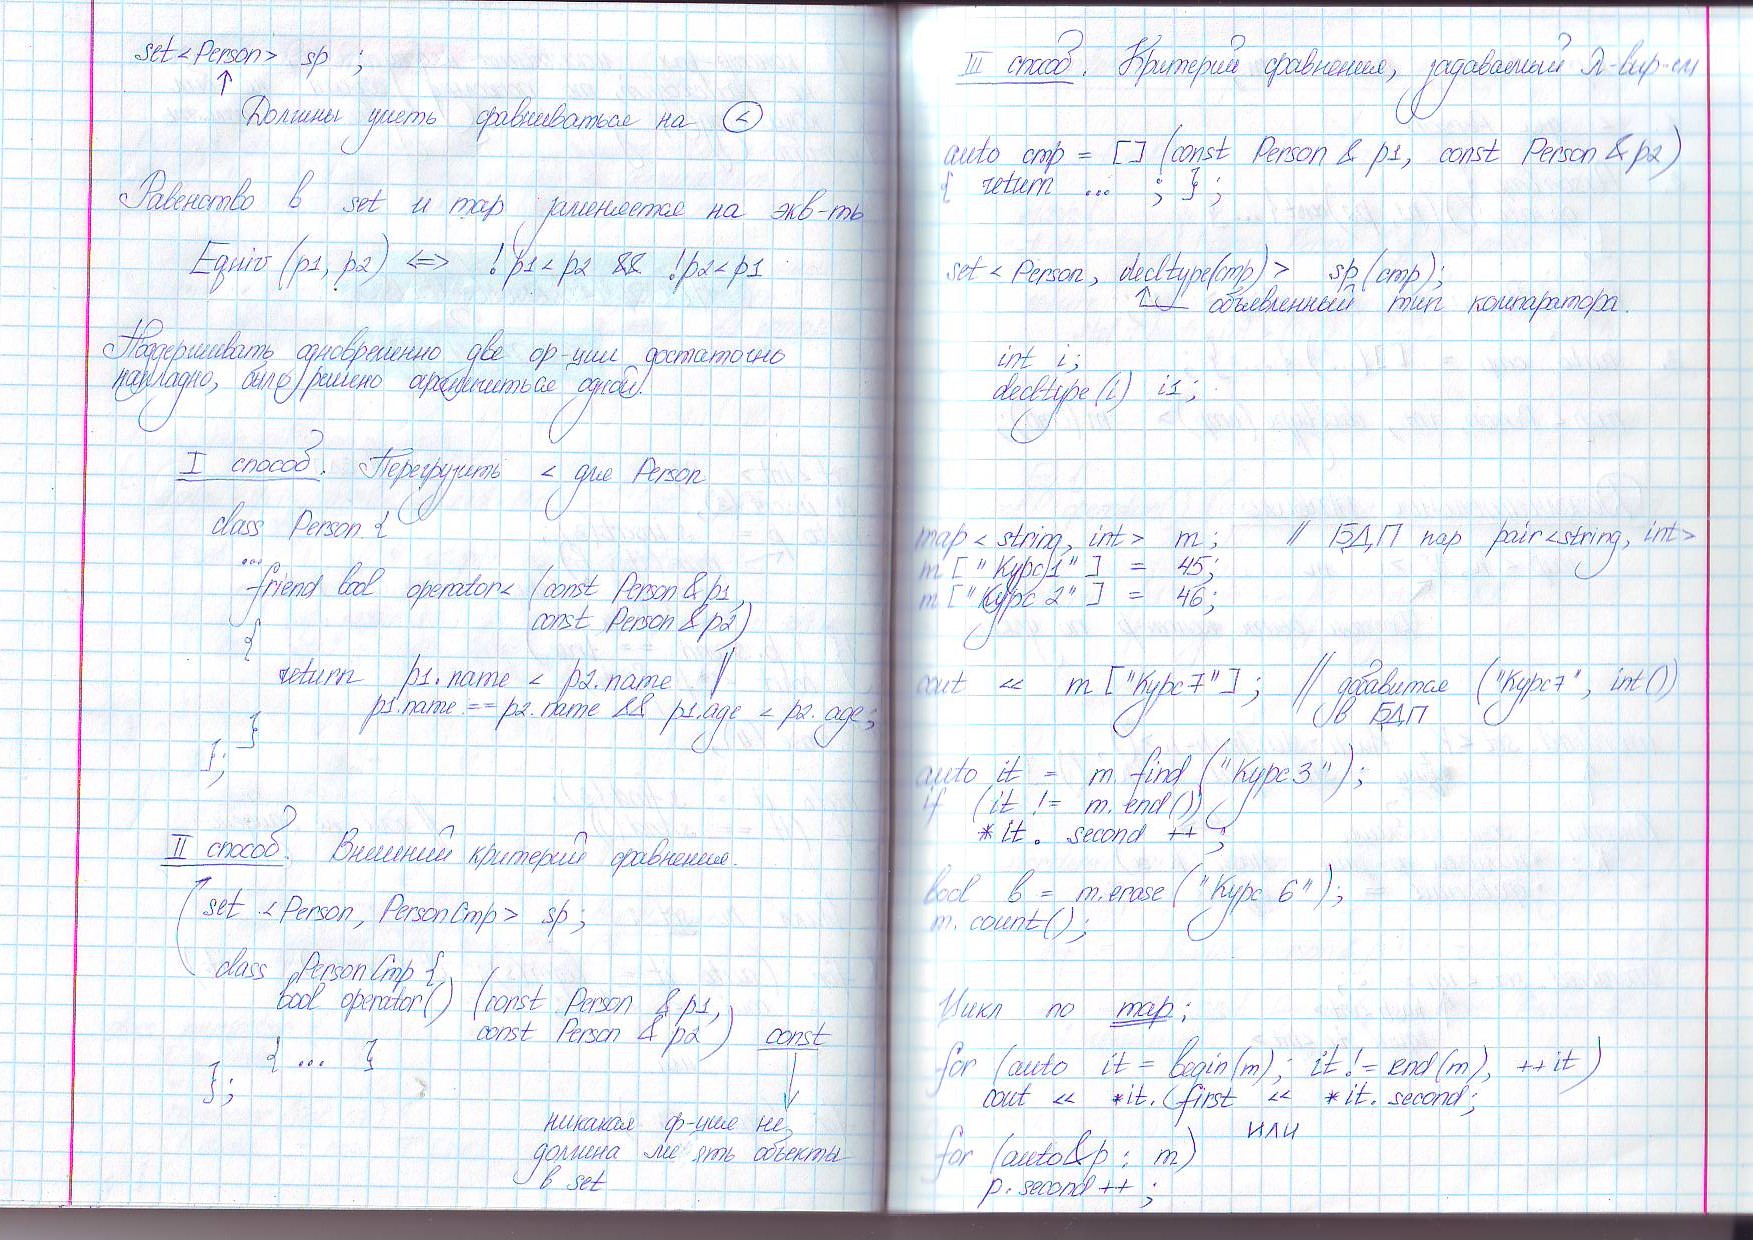 set<Person> sp ;
↑
Должны уметь сравниваться на <
Равенство в set и map заменяется на экв-ть
Equiv (p1, p2) <=> !p1<p2 && !p2<p1
Поддерживать одновременно две ор-ции достаточно
накладно, было решено ограничиться одной.
I способ. Перегрузить < для Person
class Person {
...
friend bool operator< (const Person & p1,
const Person & p2)
{
return p1.name < p2.name ||
p1.name == p2.name && p1.age < p2.age;
}
};
II способ. Внешний критерий сравнения.
set <Person, PersonCmp> sp;
class PersonCmp {
bool operator() (const Person & p1,
const Person & p2) const
{ ... }
};
никакая ф-ция не
должна менять объекты
в set
III способ. Критерий сравнения, задаваемый λ-выр-ем
auto cmp = [] (const Person & p1, const Person & p2)
{ return ... ; } ;
set < Person, decltype(cmp) > sp(cmp);
объявленный тип компаратора.
int i;
decltype(i) i1;
map < string, int > m ; // БДП пар pair<string, int>
m ["Курс 1"] = 45;
m ["Курс 2"] = 46;
cout << m ["Курс7"] ; // добавится ("Курс7", int())
в БДП
auto it = m.find ("Курс3");
if (it != m.end())
*it. second ++ ;
bool b = m.erase ("Курс 6");
m.count();
Цикл по map;
for (auto it = begin(m); it != end(m), ++it)
cout << *it. first << *it. second;
или
for (auto& p : m)
p. second++ ;